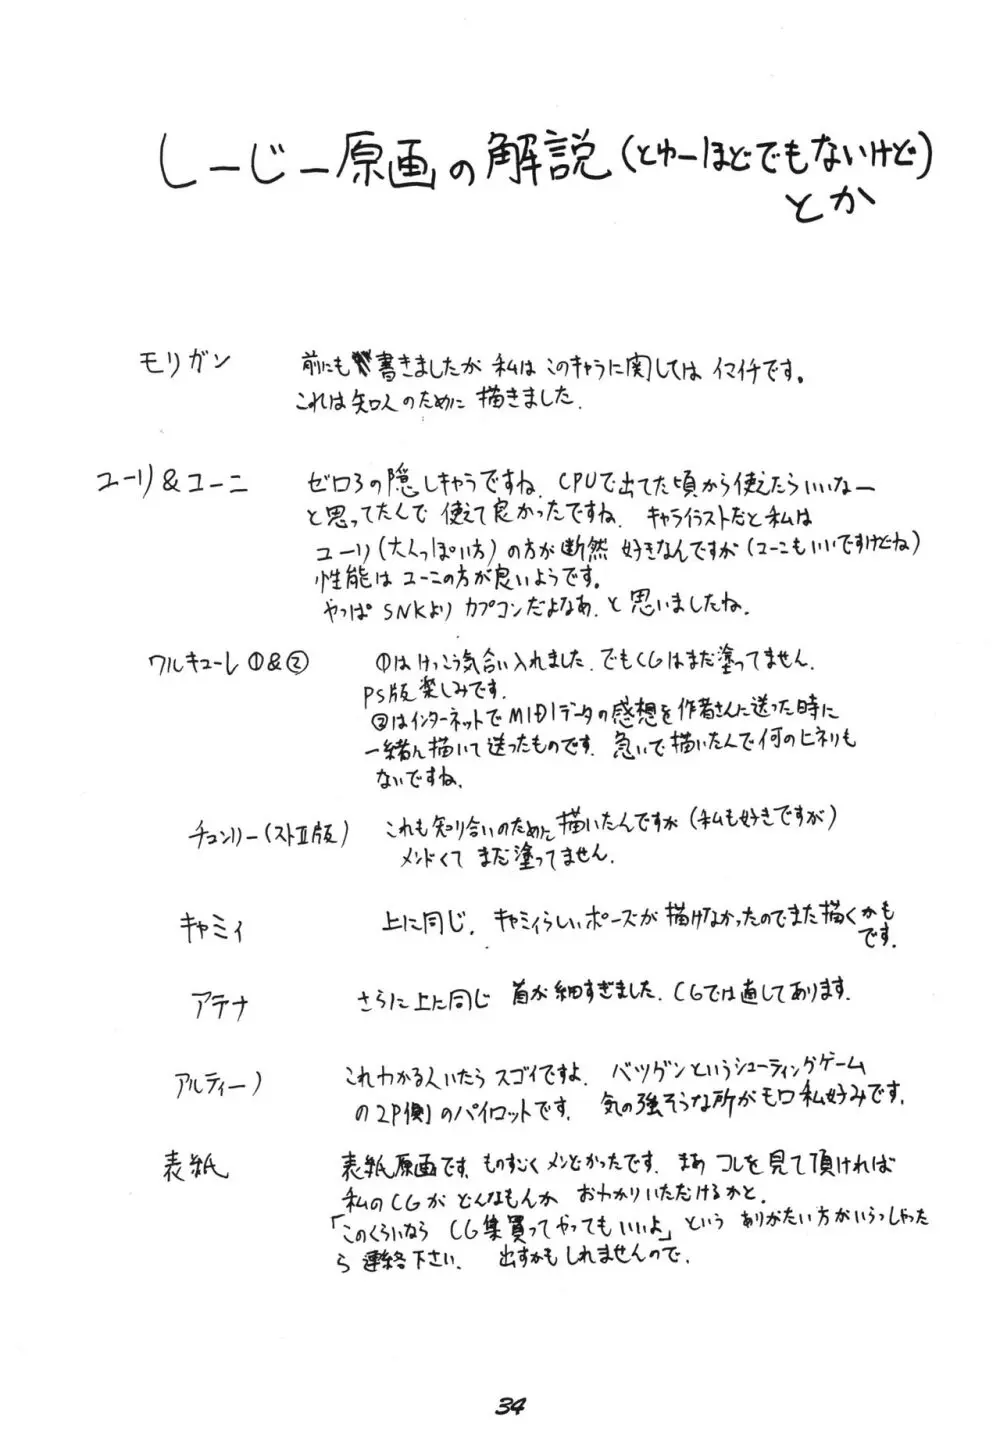 しーじー原画の解説(とゆーほどでもないけど)
とか
モリガン 前にも書きましたが私はこのキャラに関してはイマイチです。
これは知人のために描きました.
ユーリ&ユーニ ゼロ3の隠しキャラですね. CPUで出てた頃から使えたらいいなー
と思ってたんで使えて良かったですね. キャライラストだと私は
ユーリ(大人っぽい方)の方が断然好きなんですが(ユーニもいいですけどね)
性能はユーニの方が良いようです。
やっぱSNKよりカプコンだよなあ.と思いましたね.
ワルキューレ①&② ①はけっこう気合い入れました.でもCGはまだ塗ってません.
PS版楽しみです.
②はインターネットでMIDIデータの感想を作者さんに送った時に
一緒に描いて送ったものです. 急いで描いたんで何のヒネリも
ないですね.
チュンリー(ストII版) これも知り合いのために描いたんですが(私も好きですが)
メンドくてまだ塗ってません.
キャミィ 上に同じ. キャミィらしいポーズが描けなかったのでまた描くかも
です.
アテナ さらに上に同じ 首が細すぎました.CGでは直してあります.
アルティーノ これわかる人いたらスゴイですよ. バツグンというシューティングゲーム
の2P側のパイロットです. 気の強そうな所がモロ私好みです.
表紙 表紙原画です.ものすごくメンどかったです.まあコレを見て頂ければ
私のCGがどんなもんかおわかりいただけるかと.
「このくらいなら CG集買ってやってもいいよ」というありがたい方がいらっしゃった
ら連絡下さい. 出すかもしれませんので.
34